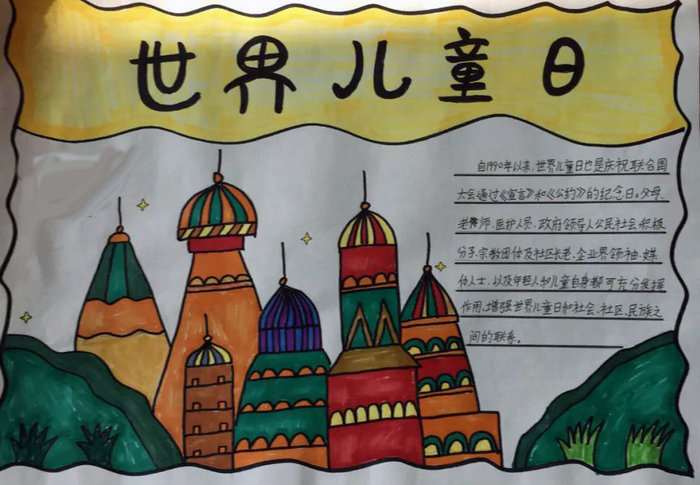 世界儿童日
自1990年以来，世界儿童日也是庆祝联合国
大会通过《宣言》和《公约》的纪念日。父母、
老师、医护人员、政府领导人公民社会积极
分子、宗教团体及社区长老、企业界领袖、媒
体人士，以及年轻人和儿童自身都可充分发挥
作用，增强世界儿童日和社会、社区、民族之
间的联系。